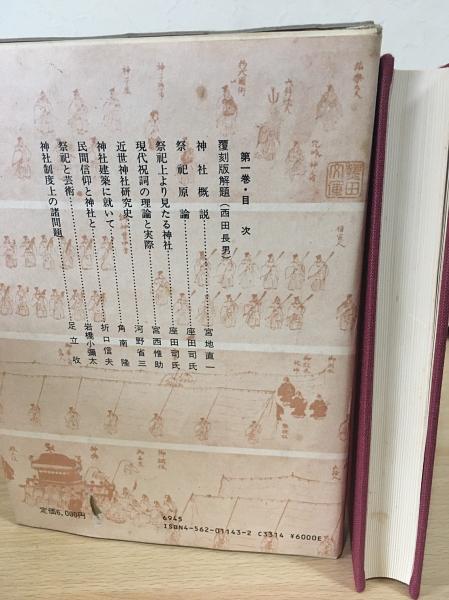 第一巻・目次
覆刻版解題(西田長男)
神社概説……………宮地直一
祭祀原論……………座田司氏
祭祀上より見たる神社……………座田司氏
現代祝詞の理論と実際……………宮西惟助
近世神社研究史……………河野省三
神社建築に就いて……………角南隆
民間信仰と神社と……………折口信夫
祭祀と芸術……………岩橋小彌太
神社制度上の諸問題……………足立收
定価6,000円
6945
ISBN4-562-01143-2 C3314 ¥6000E